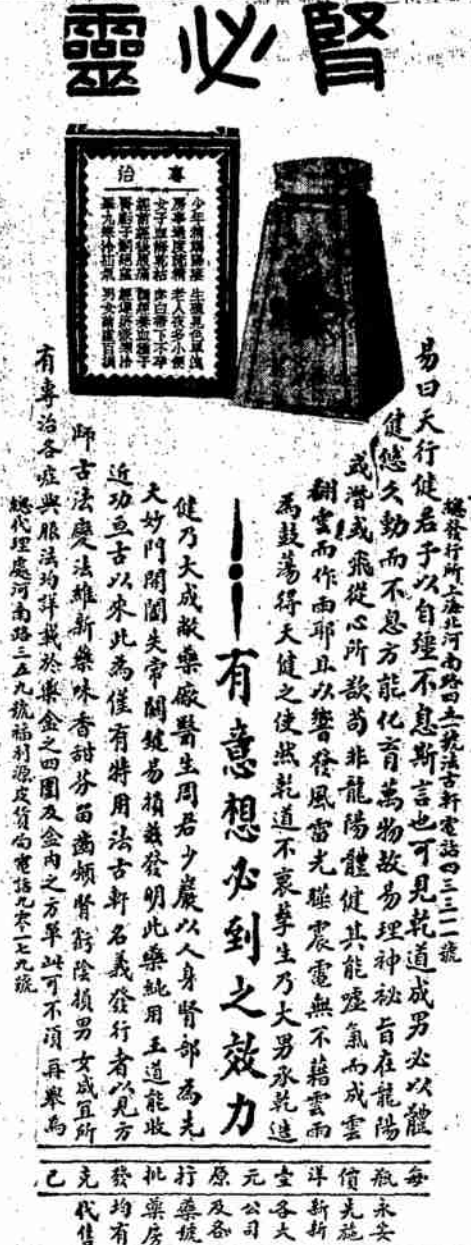 腎必靈
專治
總發行所上海北河南路四五一號法古軒電話四三三一一號
易曰天行健君子以自彊不息斯言也可見乾道成男必以體
健悠久動而不息方能化育萬物故易理神祕旨在龍陽
或潛或飛從心所欲苟非龍陽體健其能噓氣而成雲
翻雲而作雨耶且以響發風雷光驅震電無不藉雲雨
為鼓蕩得天健之使然乾道不衰孳生乃大男承乾造
有意想必到之效力
健乃大成敝藥廠醫生周君少巖以人身腎部為先
天妙門開闔失常關鍵易損茲發明此藥純用王道能收
近功亘古以來此為僅有特用法古軒名義發行者以見方
師古法慶法維新藥味香甜芬留齒頰腎虧陰損男女咸宜所
有專治各症與服法均詳載於藥盒之四圍及盒內之方單此可不須再舉為
總代理處河南路三五九號福利源皮貨局電話九零一七九號
每瓶永安
價先施
洋新新
壹各大
元公司
原及各
行藥號
批藥房
發均有
克代售
己